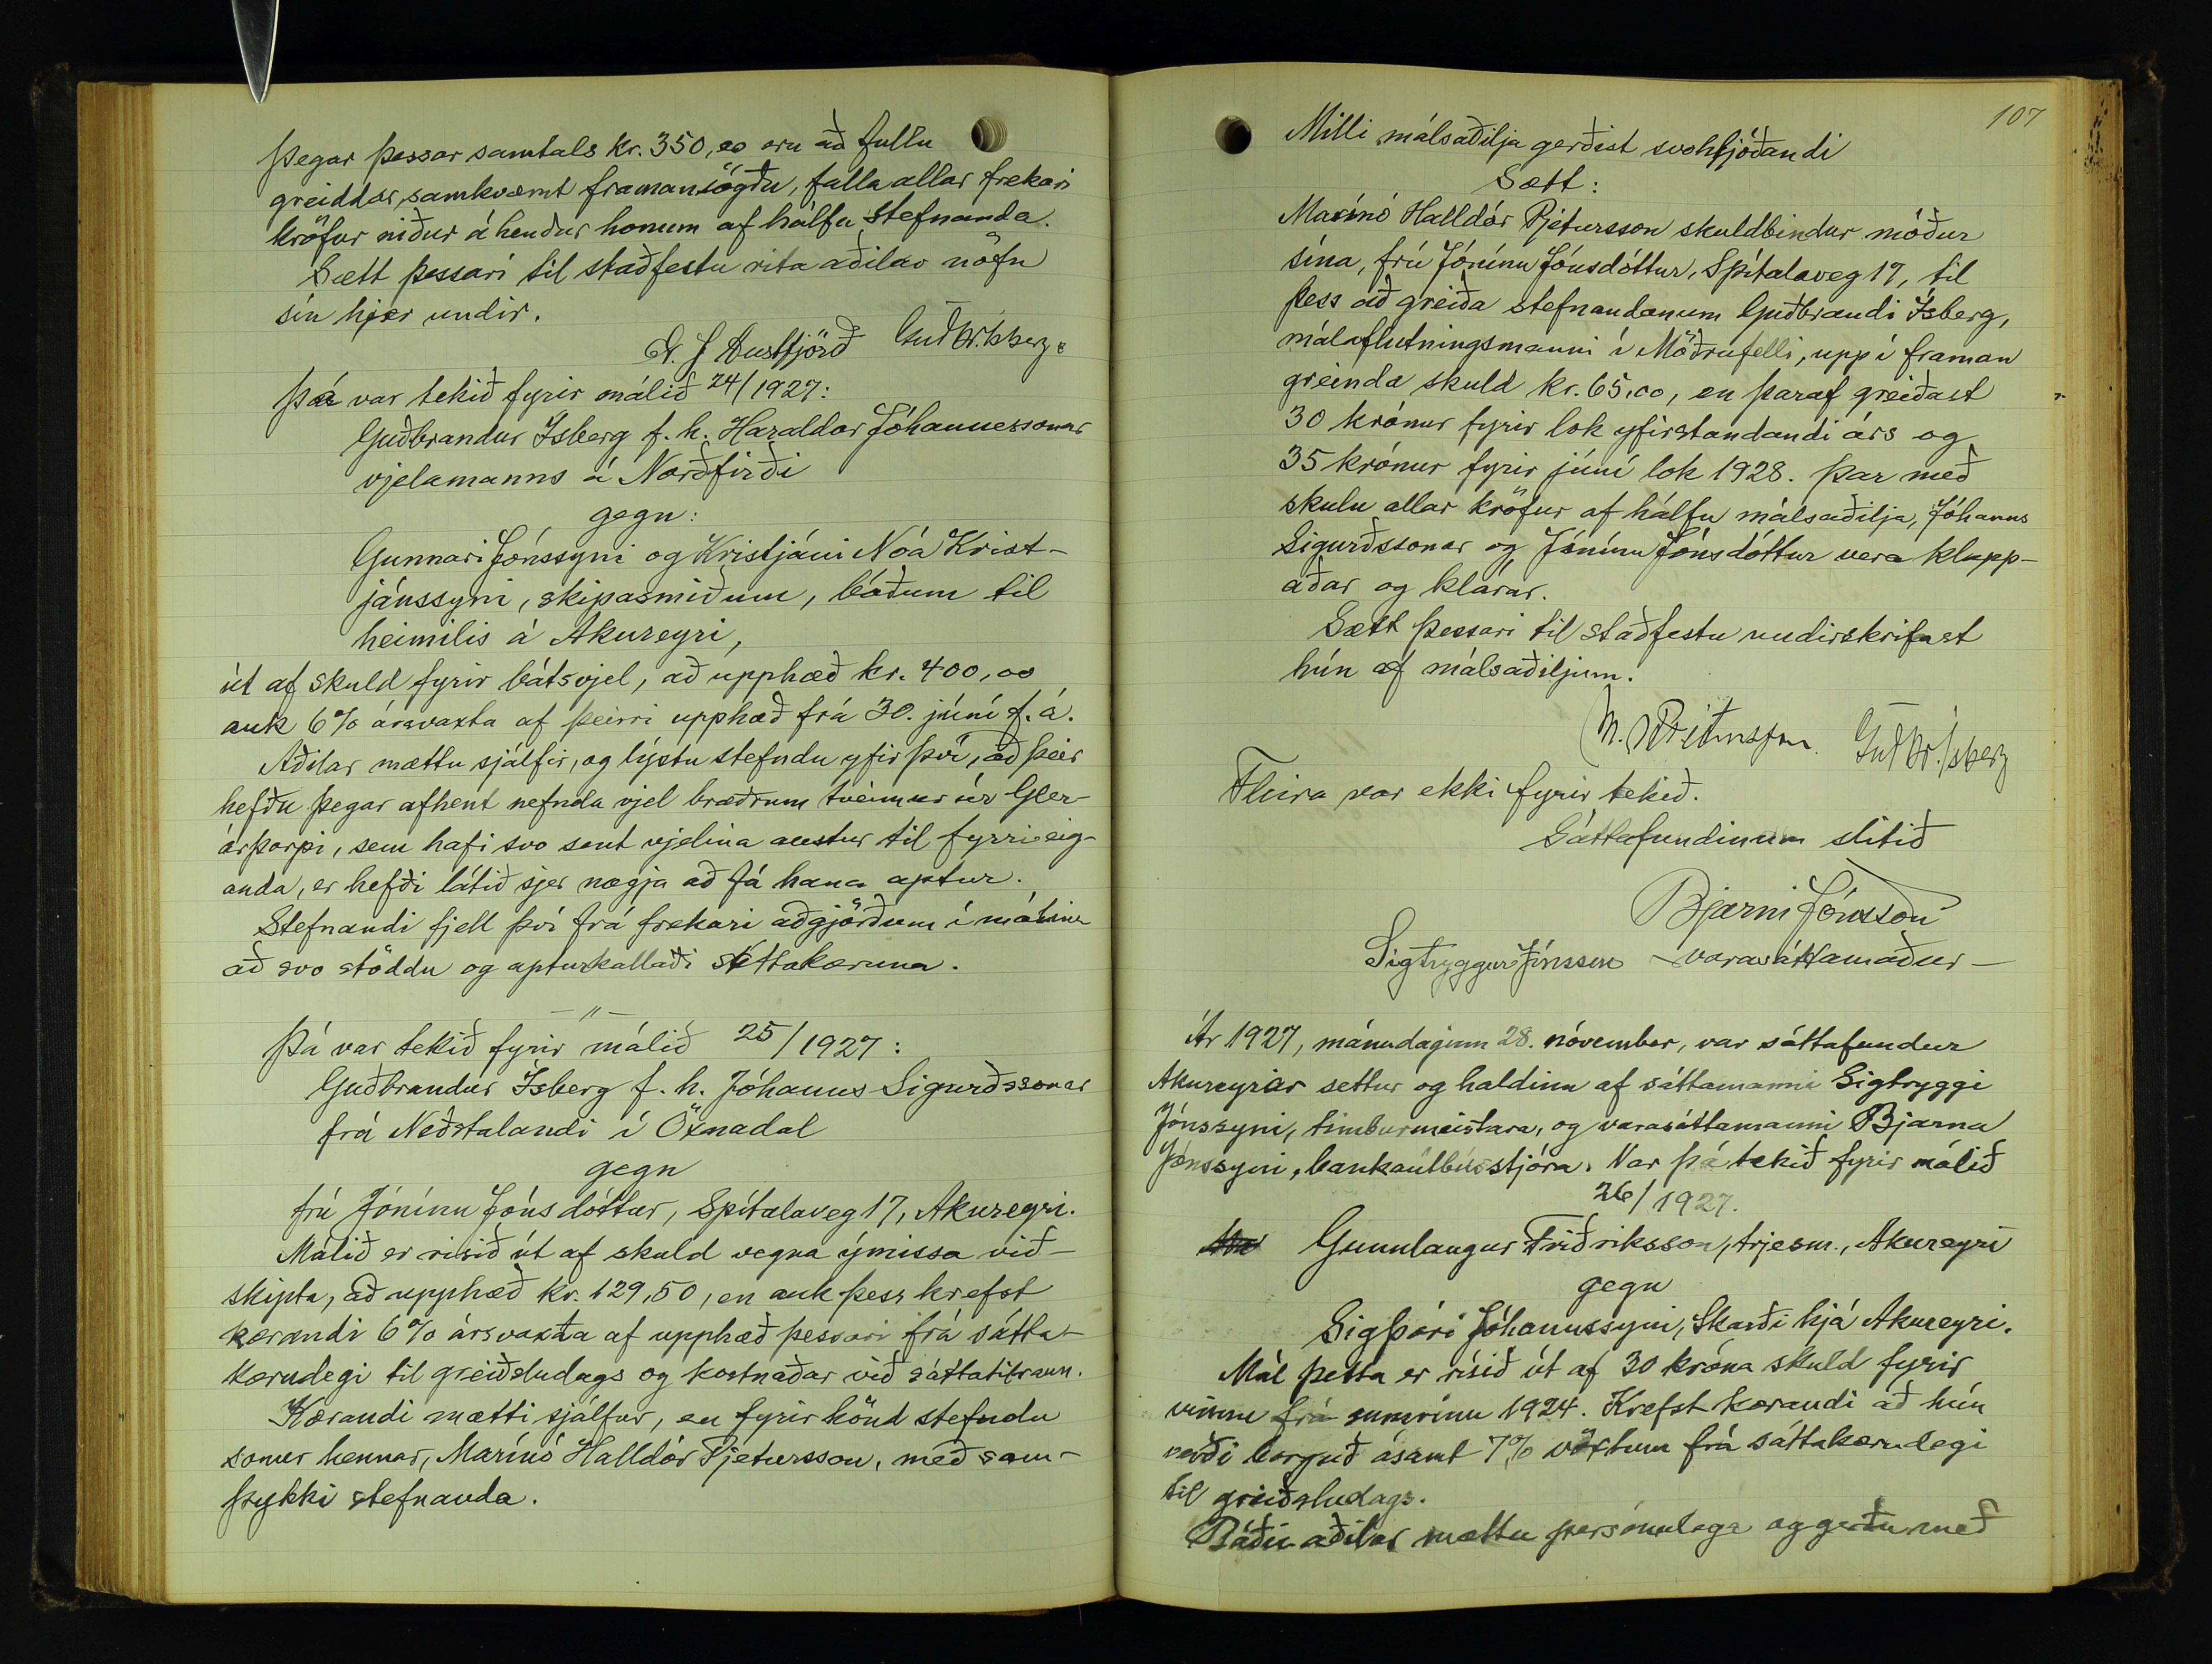 þegar þessar samtals kr. 350,00 eru að fullu
greiddar, samkvæmt framansögðu, falla allar frekari
kröfur niður á hendur honum af hálfu stefnanda.
Sætt þessari til staðfestu rita aðilar nöfn
sín hjer undir.
J. Austfjörð Guðbr. Ísberg
Þá var tekið fyrir málið 24/1927:
Guðbrandur Ísberg f. h. Haraldar Jóhannessonar
vjelamanns á Norðfirði
gegn:
Gunnari Jónssyni og Kristjáni Nóa Krist-
jánssyni, skipasmiðum, báðum til
heimilis á Akureyri,
út af skuld fyrir bátsvjel, að upphæð kr. 400,00
auk 6% ársvaxta af þeirri upphæð frá 30. júní f. á.
Aðilar mættu sjálfir, og lýstu stefndu yfir því, að þeir
hefðu þegar afhent nefnda vjel bræðrum tveimur úr Gler-
árþorpi, sem hafi svo sent vjelina austur til fyrri eig-
anda, er hefði látið sjer nægja að fá hana aptur.
Stefnandi fjell því frá frekari aðgjörðum í málinu
að svo stöddu og apturkallaði sáttakæruna.
— " —
Þá var tekið fyrir málið 25/1927:
Guðbrandur Ísberg f. h. Jóhanns Sigurðssonar
frá Neðstalandi í Öxnadal
gegn
frú Jónínu Jónsdóttur, Spítalaveg 17, Akureyri.
Málið er risið út af skuld vegna ýmissa við-
skipta, að upphæð kr. 129,50, en auk þess krefst
kærandi 6% ársvaxta af upphæð þessari frá sátta-
kærudegi til greiðsludags og kostnaðar við sáttatilraun.
Kærandi mætti sjálfur, en fyrir hönd stefndu
sonur hennar, Marínó Halldór Pjetursson, með sam-
þykki stefnanda.
107
Milli málsaðilja gerðist svohljóðandi
Sætt:
Marínó Halldór Pjetursson skuldbindur móður
sína, frú Jónínu Jónsdóttur, Spítalaveg 17, til
þess að greiða stefnandanum Guðbrandi Ísberg,
málaflutningsmanni í Möðrufelli, upp í framan
greinda skuld kr. 65,00, en þaraf greiðast
30 krónur fyrir lok yfirstandandi árs og
35 krónur fyrir júní lok 1928. Þar með
skulu allar kröfur af hálfu málsaðilja, Jóhanns
Sigurðssonar og Jónínu Jónsdóttur vera klapp-
aðar og klárar.
Sætt þessari til staðfestu undirskrifast
hún af málsaðiljum.
M. H. Pjetursson. Guðbr. Ísberg
Fleira var ekki fyrir tekið.
Sáttafundinum slitið
Bjarni Jónsson
Sigtryggur Jónsson – varasáttamaður –
Ár 1927, mánudaginn 28. nóvember, var sáttafundur
Akureyrar settur og haldinn af sáttamanni Sigtryggi
Jónssyni, timburmeistara, og varasáttamanni Bjarna
Jónssyni, bankaútbússtjóra. Var þá tekið fyrir málið
26/1927.
Gunnlaugur Friðriksson, trjesm., Akureyri
gegn
Sigþóri Jóhannssyni, Skarði hjá Akureyri.
Mál þetta er risið út af 30 króna skuld fyrir
vinnu frá sumrinu 1924. Krefst kærandi að hún
verði borguð ásamt 7% vöxtum frá sáttakærudegi
til greiðsludags.
Báðir aðilar mættu persónulega og gerðu með